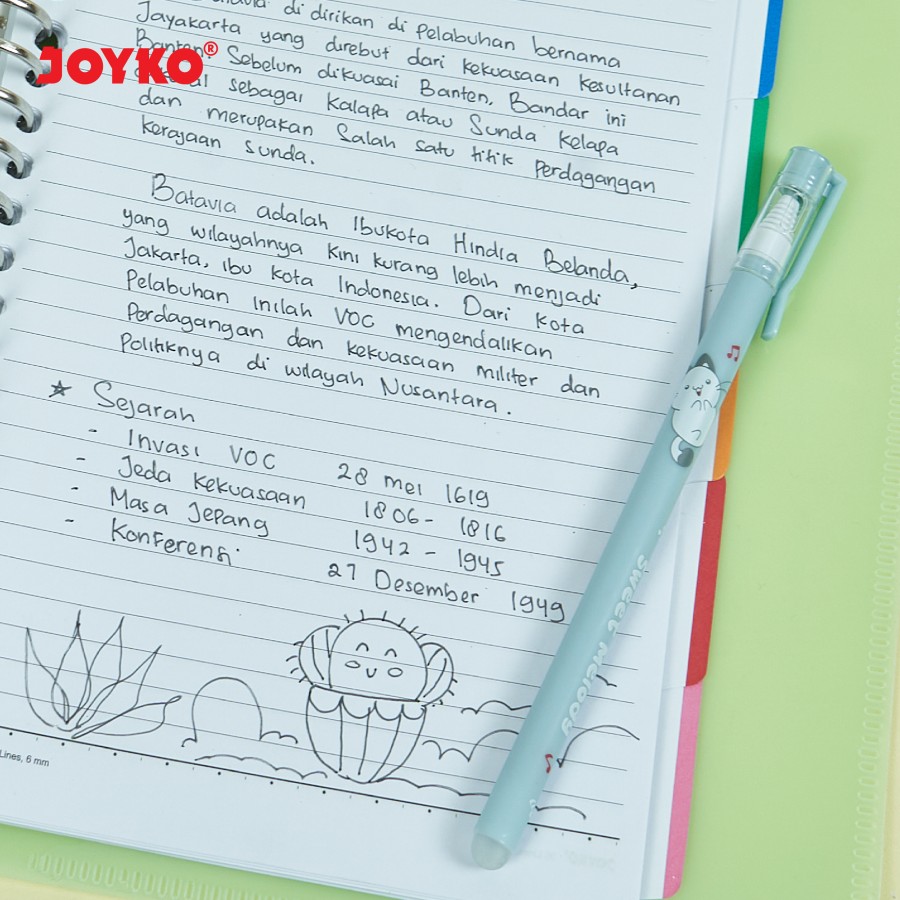 JOYKO®
di dirikan di Pelabuhan bernama
Jayakarta yang direbut dari kekuasaan Kesultanan
Banten. Sebelum dikuasai Banten, Bandar ini
sebagai Kalapa atau Sunda Kelapa
dan merupakan Salah satu titik Perdagangan
Kerajaan Sunda.
Batavia adalah Ibukota Hindia Belanda,
yang wilayahnya Kini kurang lebih menjadi
Jakarta, ibu kota Indonesia. Dari Kota
Pelabuhan inilah VOC mengendalikan
Perdagangan dan kekuasaan militer dan
Politiknya di wilayah Nusantara.
★ Sejarah
- Invasi VOC 28 mei 1619
- Jeda kekuasaan 1806 - 1816
- Masa Jepang 1942 - 1945
- Konferensi 27 Desember 1949
Sweet Melody
Lines, 6 mm